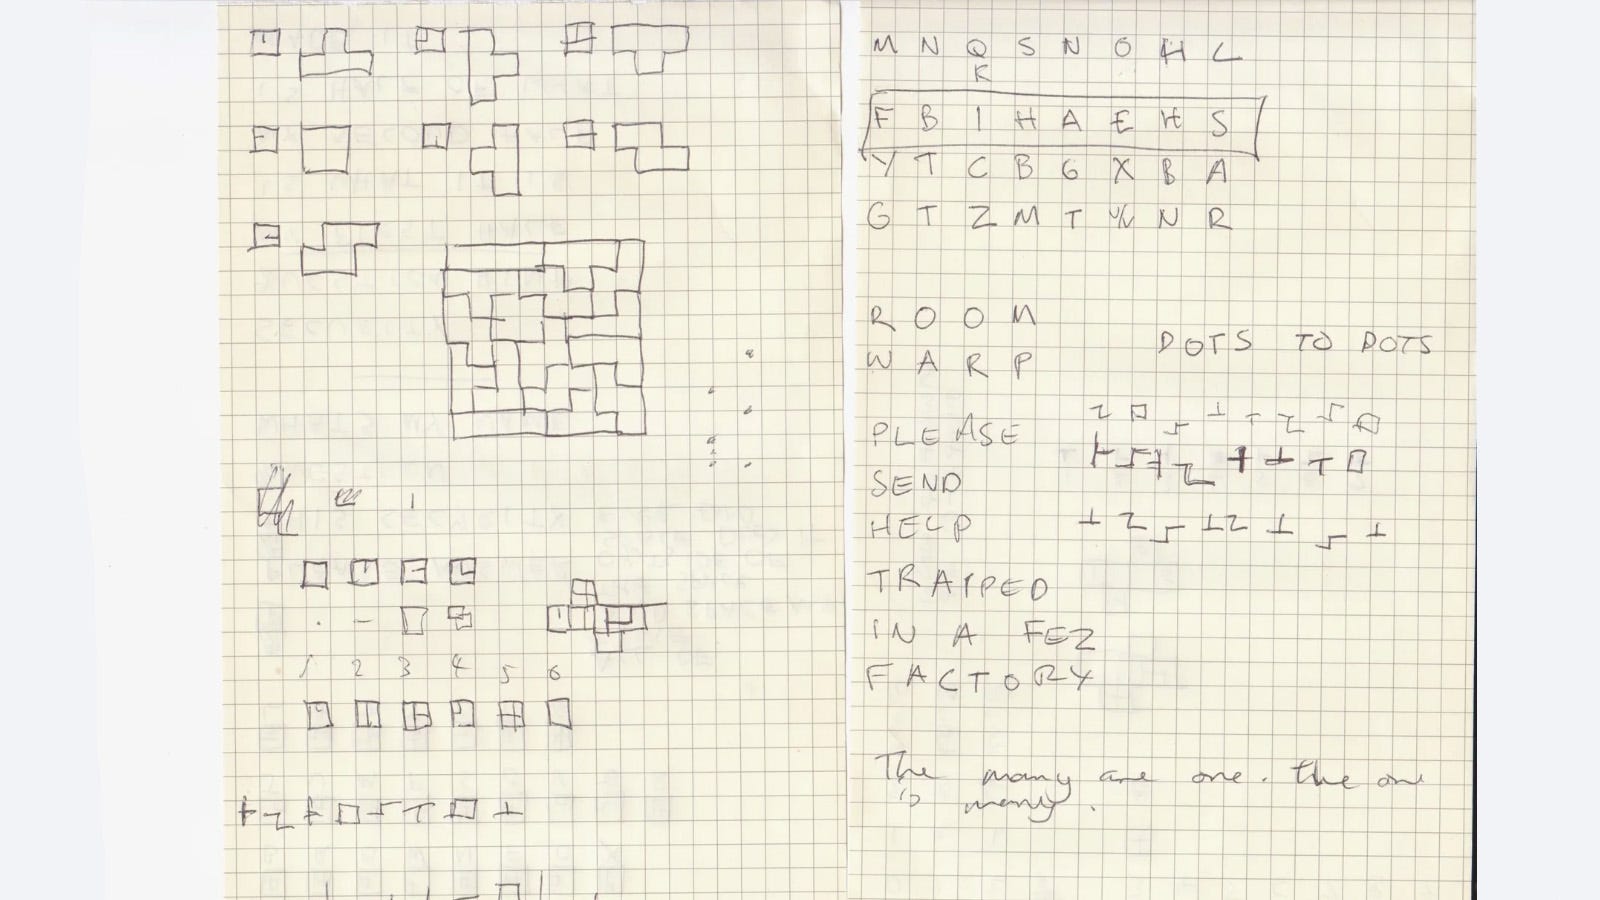 1 2 3 4 5 6
M N Q S N O H L
K
F B I H A E H S
Y T C B G X B A
G T Z M T N R
R O O M
W A R P
DOTS TO DOTS
PLEASE
SEND
HELP
TRAPPED
IN A FEZ
FACTORY
The many are one. the one
is many.